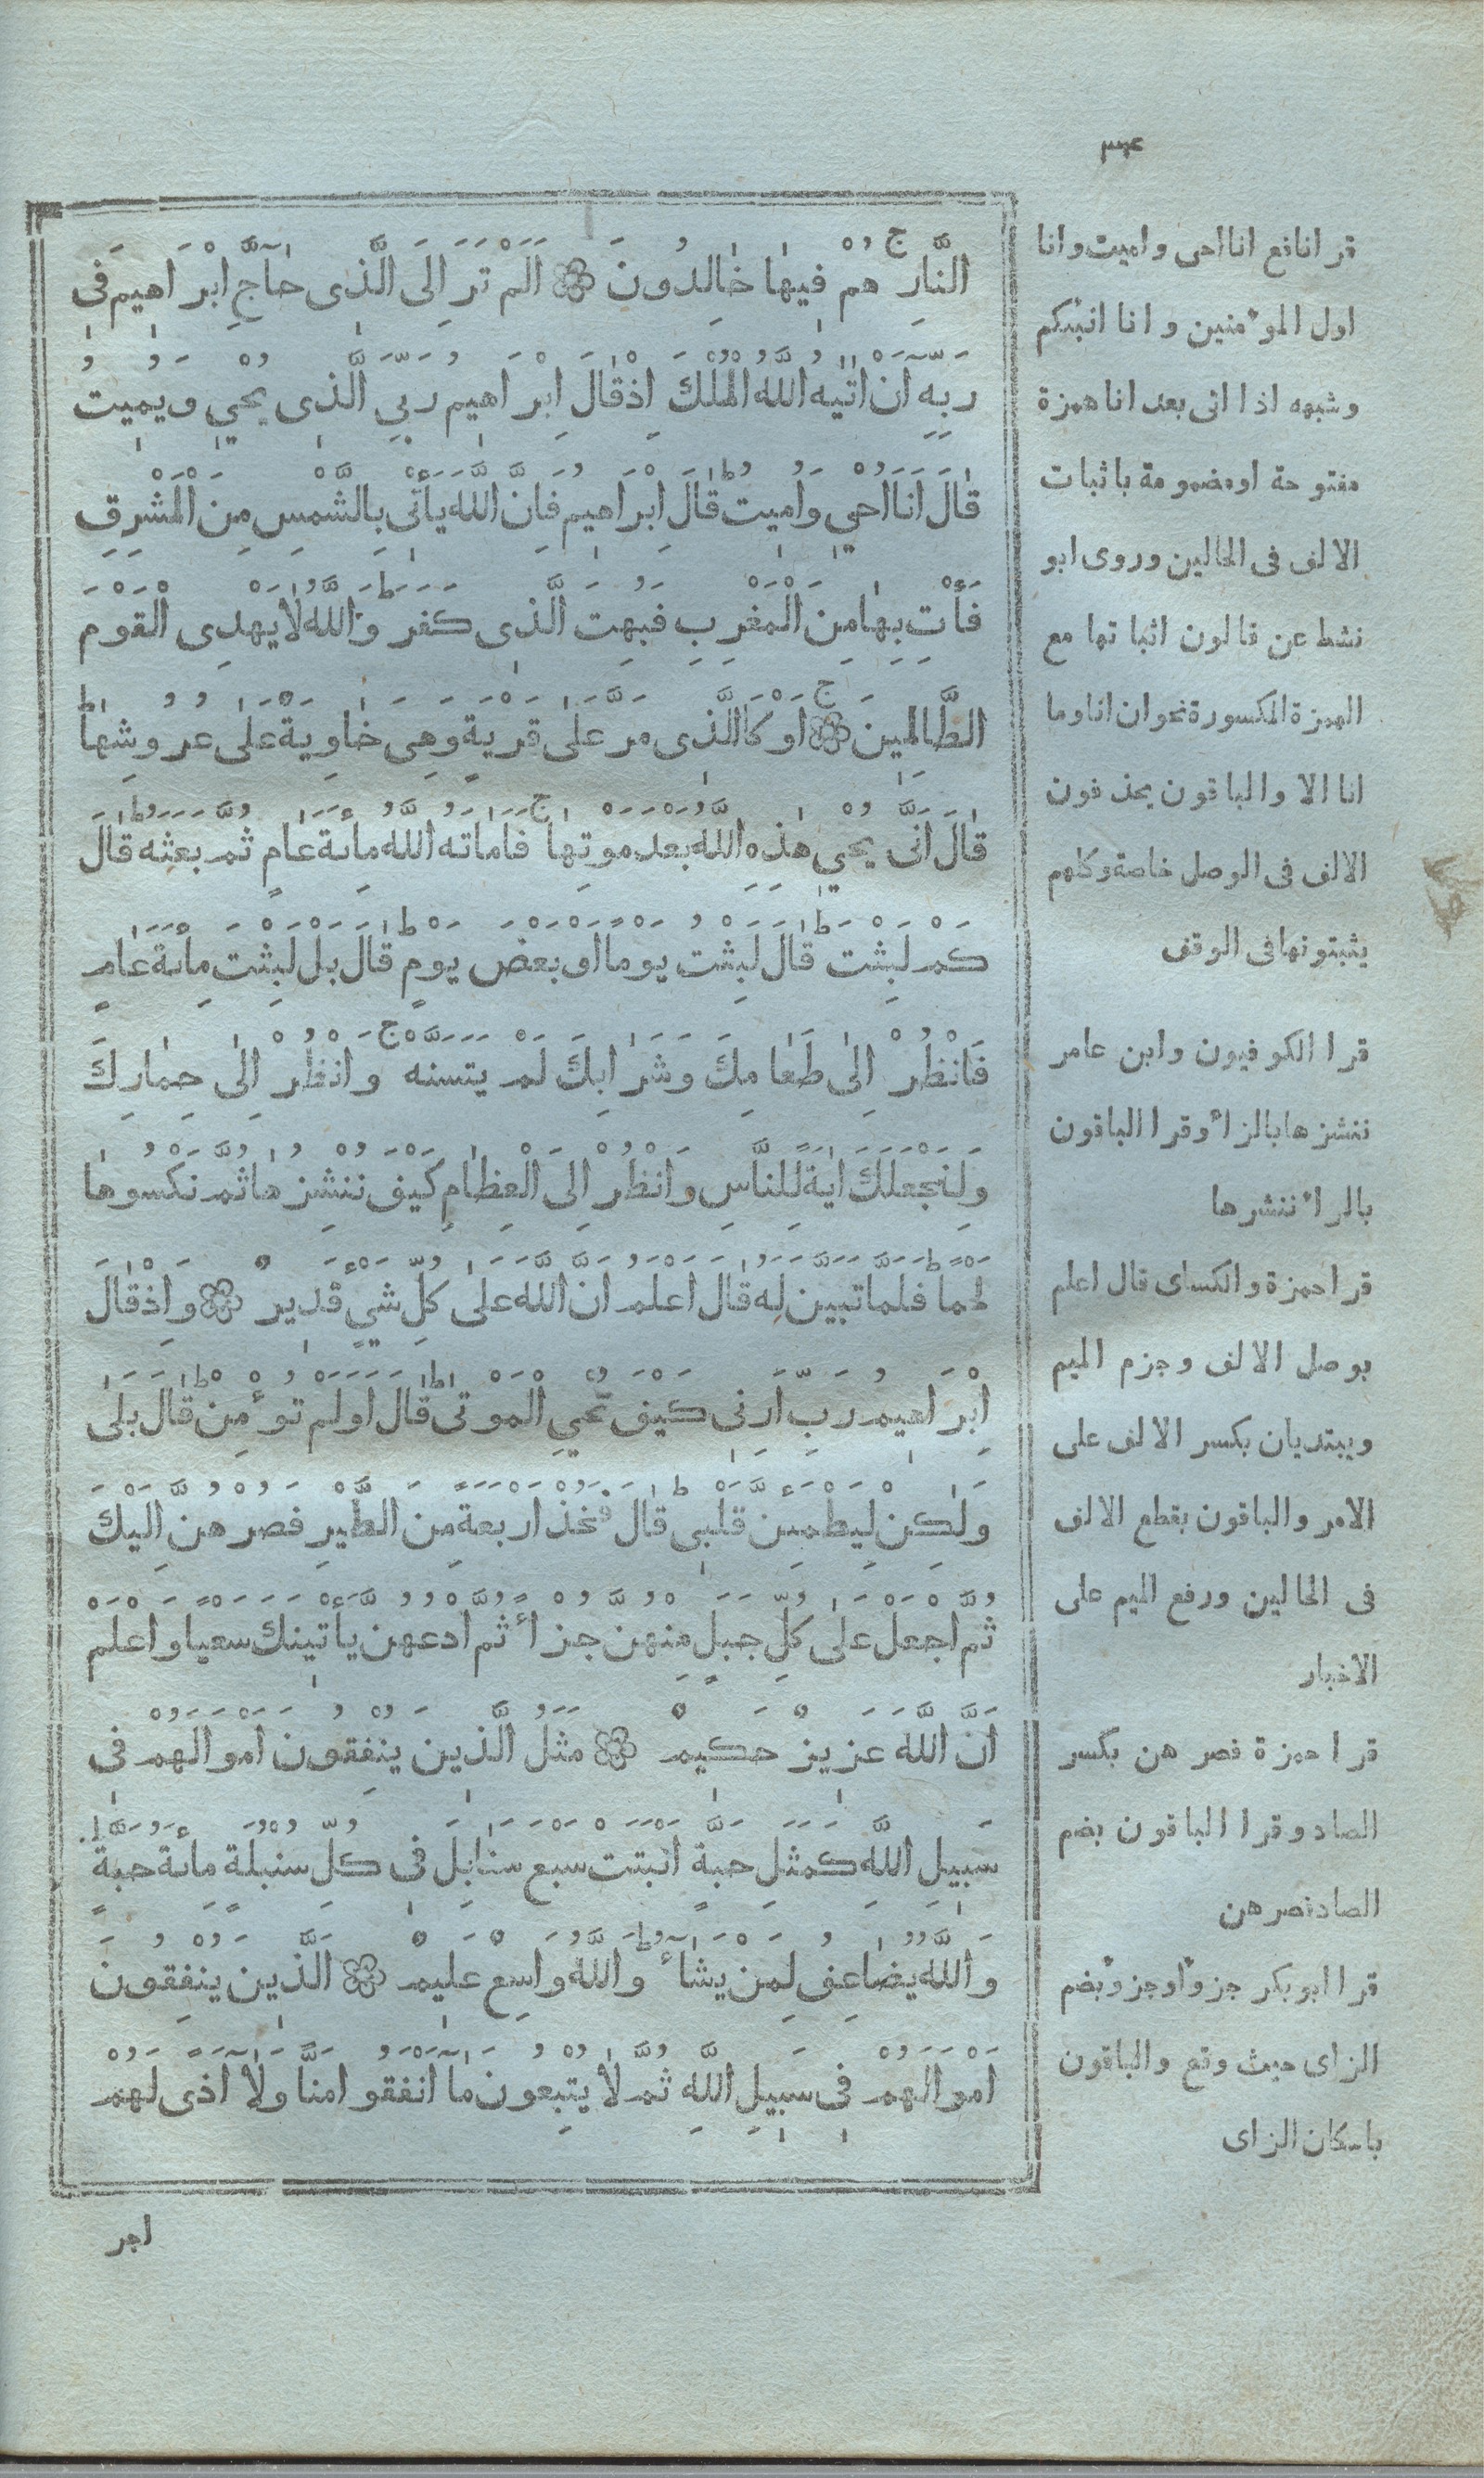 ٣٤
النَّارِ ج هُمْ فِيهَا خَالِدُونَ ۞ اَلَمْ تَرَ اِلَى الَّذِى حَآجَّ اِبْرَاهِيمَ فِى
رَبِّهِٓ اَنْ اٰتٰيهُ اللَّهُ الْمُلْكَ اِذْ قَالَ اِبْرَاهِيمُ رَبِّىَ الَّذِى يُحْيِي وَيُمِيتُ
قَالَ اَنَا اُحْيِي وَاُمِيتُ ط قَالَ اِبْرَاهِيمُ فَاِنَّ اللَّهَ يَأْتِى بِالشَّمْسِ مِنَ الْمَشْرِقِ
فَأْتِ بِهَا مِنَ الْمَغْرِبِ فَبُهِتَ الَّذِى كَفَرَ ط وَاللَّهُ لَا يَهْدِى الْقَوْمَ
الظَّالِمِينَ ج ۞ اَوْ كَالَّذِى مَرَّ عَلَى قَرْيَةٍ وَهِىَ خَاوِيَةٌ عَلَى عُرُوشِهَا ط
قَالَ اَنَّى يُحْيِي هٰذِهِ اللَّهُ بَعْدَ مَوْتِهَا ج فَاَمَاتَهُ اللَّهُ مِائَةَ عَامٍ ثُمَّ بَعَثَهُ ط قَالَ
كَمْ لَبِثْتَ ط قَالَ لَبِثْتُ يَوْمًا اَوْ بَعْضَ يَوْمٍ ط قَالَ بَلْ لَبِثْتَ مِائَةَ عَامٍ
فَانْظُرْ اِلٰى طَعَامِكَ وَشَرَابِكَ لَمْ يَتَسَنَّهْ ج وَانْظُرْ اِلٰى حِمَارِكَ
وَلِنَجْعَلَكَ اٰيَةً لِلنَّاسِ وَانْظُرْ اِلَى الْعِظَامِ كَيْفَ نُنْشِزُهَا ثُمَّ نَكْسُوهَا
لَحْمًا ط فَلَمَّا تَبَيَّنَ لَهُ قَالَ اَعْلَمُ اَنَّ اللَّهَ عَلَى كُلِّ شَيْءٍ قَدِيرٌ ۞ وَاِذْ قَالَ
اِبْرَاهِيمُ رَبِّ اَرِنِى كَيْفَ تُحْيِي الْمَوْتَى ط قَالَ اَوَلَمْ تُؤْمِنْ ط قَالَ بَلَى
وَلٰكِنْ لِيَطْمَئِنَّ قَلْبِى ط قَالَ فَخُذْ اَرْبَعَةً مِنَ الطَّيْرِ فَصُرْهُنَّ اِلَيْكَ
ثُمَّ اجْعَلْ عَلَى كُلِّ جَبَلٍ مِنْهُنَّ جُزْأً ثُمَّ ادْعُهُنَّ يَأْتِينَكَ سَعْيًا وَاعْلَمْ
اَنَّ اللَّهَ عَزِيزٌ حَكِيمٌ ۞ مَثَلُ الَّذِينَ يُنْفِقُونَ اَمْوَالَهُمْ فِى
سَبِيلِ اللَّهِ كَمَثَلِ حَبَّةٍ اَنْبَتَتْ سَبْعَ سَنَابِلَ فِى كُلِّ سُنْبُلَةٍ مِائَةُ حَبَّةٍ ط
وَاللَّهُ يُضَاعِفُ لِمَنْ يَشَآءُ ط وَاللَّهُ وَاسِعٌ عَلِيمٌ ۞ اَلَّذِينَ يُنْفِقُونَ
اَمْوَالَهُمْ فِى سَبِيلِ اللَّهِ ثُمَّ لَا يُتْبِعُونَ مَآ اَنْفَقُوا مَنًّا وَلَآ اَذًى لَهُمْ
اجر
قرا نافع انا احى واميت وانا
اول الموٴمنين وانا انبئكم
وشبهه اذا اتى بعد انا همزة
مفتوحة او مضمومة باثبات
الالف فى الحالين وروى ابو
نشط عن قالون اثباتها مع
الهمزة المكسورة نحو ان انا وما
انا الا والباقون يحذفون
الالف فى الوصل خاصة وكلهم
يثبتونها فى الوقف
قرا الكوفيون وابن عامر
ننشزها بالزاء وقرا الباقون
بالراء ننشرها
قرا حمزة والكساى قال اعلم
بوصل الالف وجزم الميم
ويبتديان بكسر الالف على
الامر والباقون بقطع الالف
فى الحالين ورفع الميم على
الاخبار
قرا حمزة فصرهن بكسر
الصاد وقرا الباقون بضم
الصاد فصرهن
قرا ابو بكر جزوٴا وجزوٴ بضم
الزاى حيث وقع والباقون
باسكان الزاى